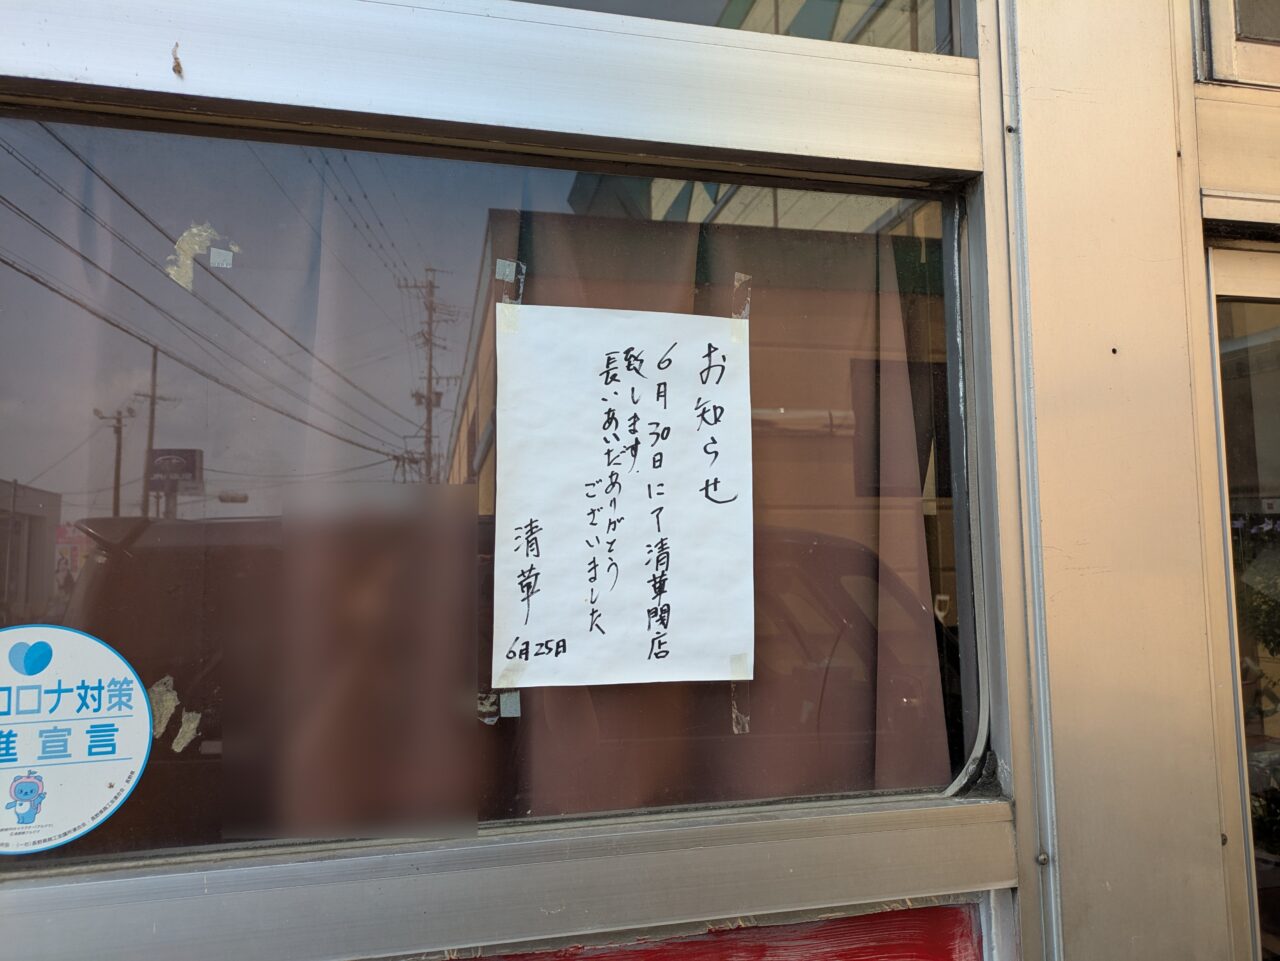 お知らせ
6月30日にて清華閉店
致します.
長いあいだありがとう
ございました
清華
6月25日
コロナ対策
進宣言